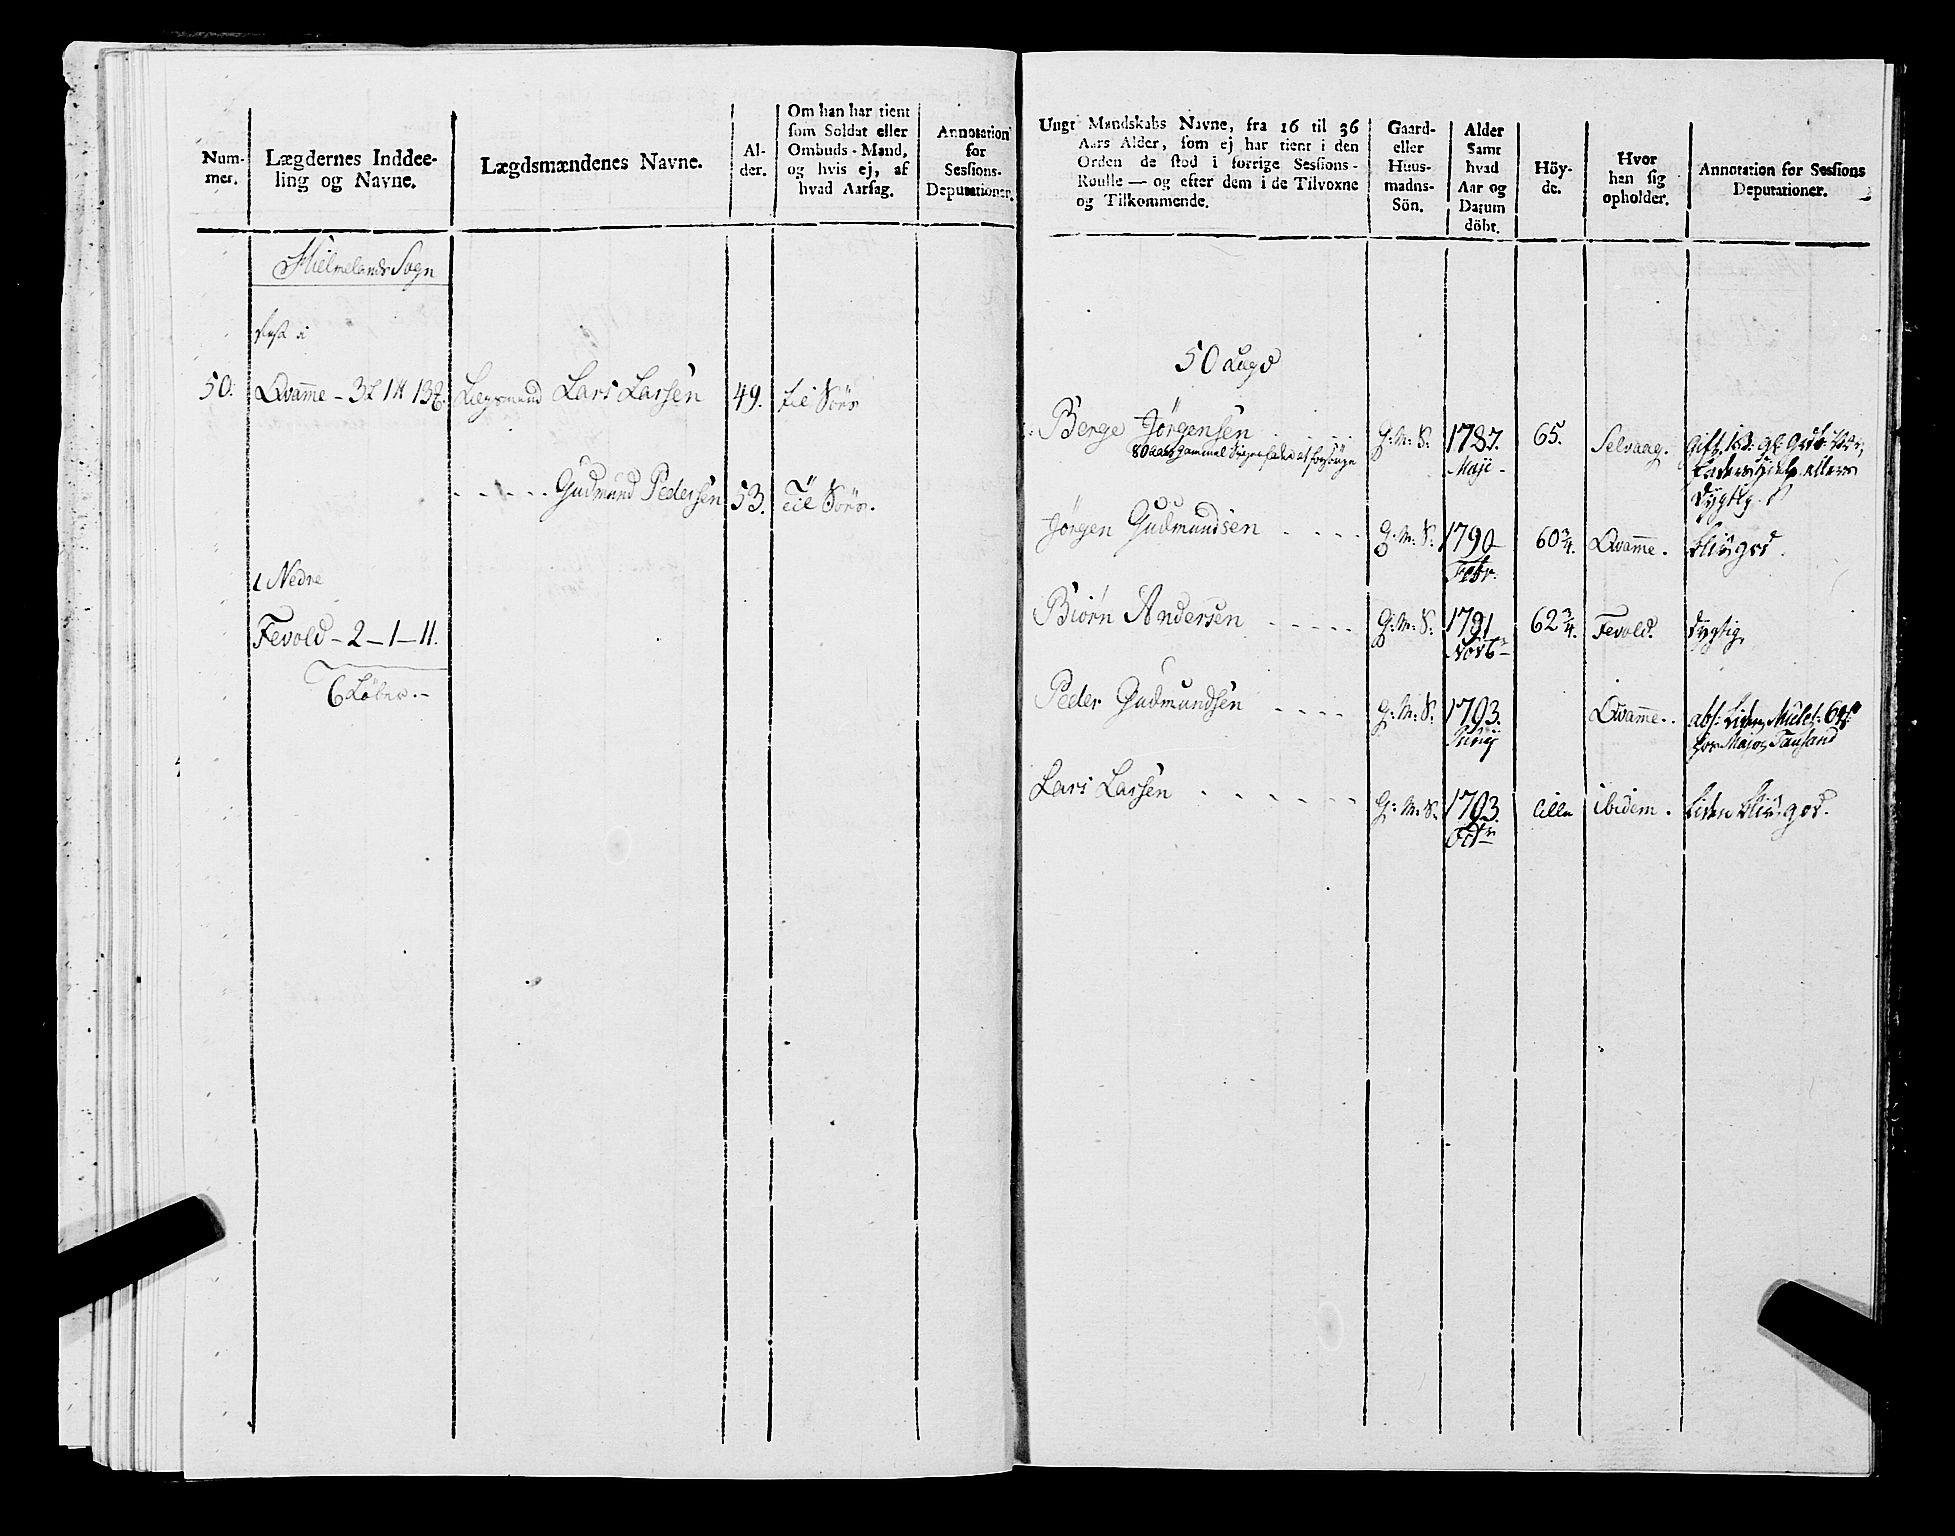 Num-
mer.
Lægdernes Inddee-
ling og Navne.
Lægdsmændenes Navne.
Al-
der.
Om han har tient
som Soldat eller
Ombuds-Mand,
og hvis ej, af
hvad Aarsag.
Annotation
for
Sessions-
Deputationer.
Hielmelands Sogn
50. Qvamme - 3 1 13 Lægsmand Lars Larsen 49. til Søes
Gudmund Pedersen 53. Til Søes.
Nedre
Fevold - 2 - 1 - 11.
6 Løber.
Ungt Mandskabs Navne, fra 16 til 36
Aars Alder, som ej har tient i den
Orden de stod i forrige Sessions-
Roulle — og efter dem i de Tilvoxne
og Tilkommende.
Gaard-
eller
Huus-
madns-
Sön.
Alder
Samt
hvad
Aar og
Datum
döbt.
Höy-
de.
Hvor
han sig
opholder.
Annotation for Sessions
Deputationer.
50 Lægd
Berge Jörgensen G: M: S. 1787. 65. Selvaag. Gift
80 aars gammel at forsörge Maji
dygtig.
Jörgen Gudmundsen G: M: S. 1790 60 3/4. Qvamme. bliv god.
Febr.
Biørn Andersen G: M: S. 1791 62 3/4. Fevold. dygtig
Novbr
Peder Gudmundsen G: M: S. 1793. Qvamme. abs:
Junij for Major Tausand
Lars Larsen G: M: S. 1793. lille ibidem. liden bliv god.
Octr